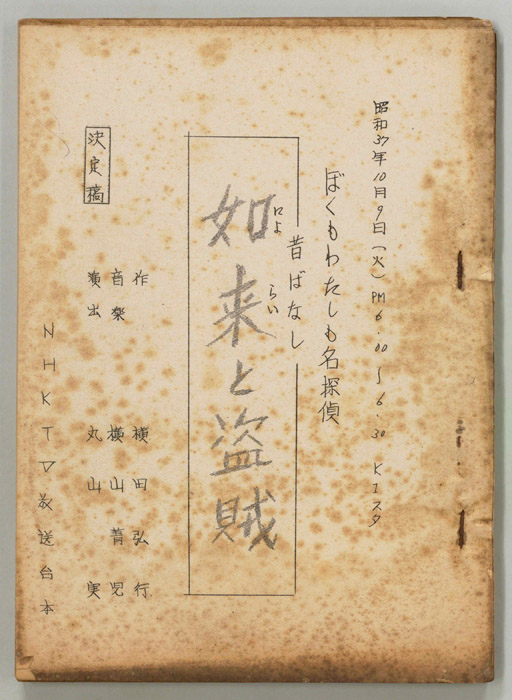 昭和37年10月9日(火)PM6.00~6.30 KIスタ
ぼくもわたしも名探偵
昔ばなし
如来と盗賊
にょ らい
作 横田弘行
音楽 横山菁児
演出 丸山 実
決定稿
NHKTV放送台本